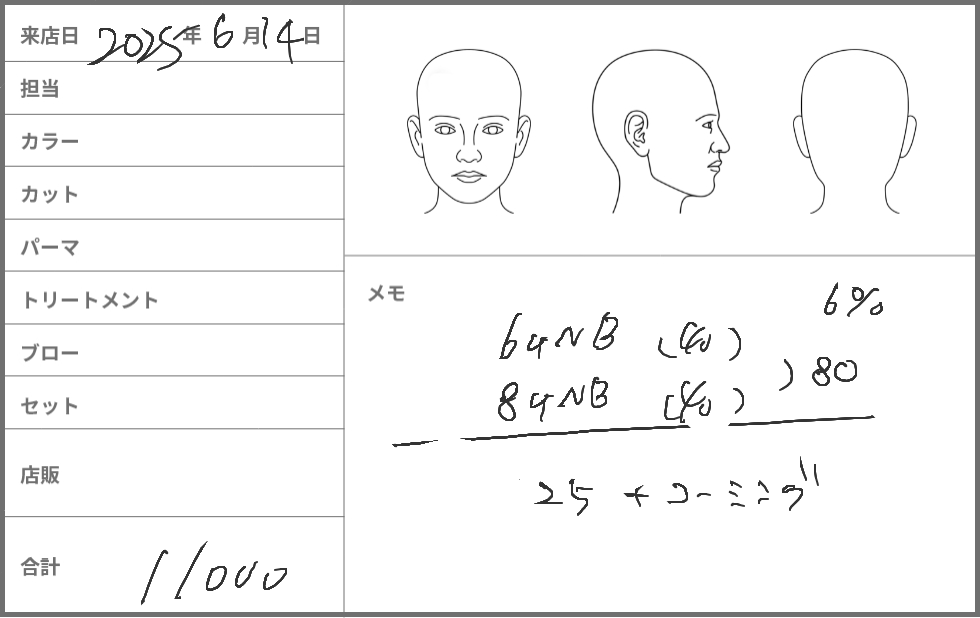 来店日 2025年 6月14日
担当
カラー
カット
パーマ
トリートメント
ブロー
セット
店販
合計 11000
メモ
6%
64NB (40)
84NB (40) ) 80
25 + コーミング